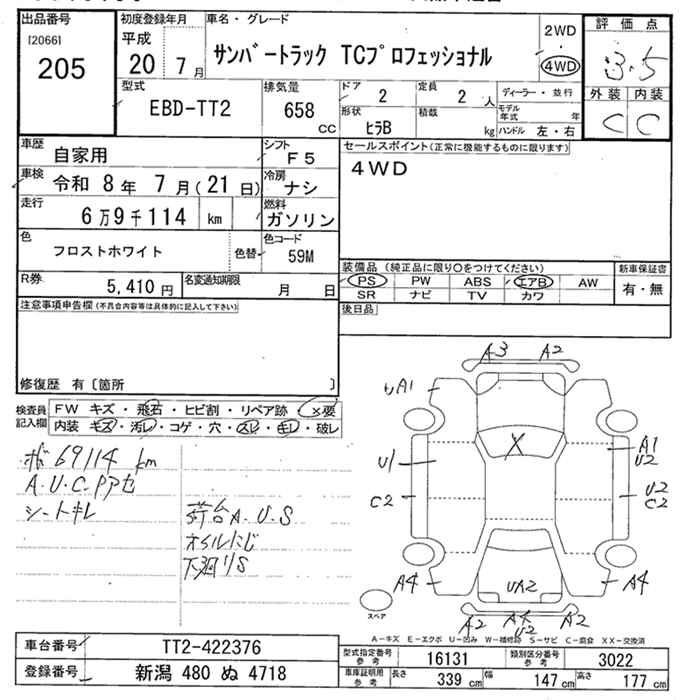 出品番号
[2066]
205
初度登録年月
平成
20 7月
車名・グレード
サンバートラック TCプロフェッショナル
2WD
4WD
評価点
3.5
外装 内装
C C
型式
EBD-TT2
排気量
658
cc
ドア
2
定員
2 人
形状
ヒラB
積載
kg
ディーラー・並行
モデル年式 年
ハンドル 左・右
車歴
自家用
シフト
F5
車検
令和 8年 7月(21日)
冷房
ナシ
走行
6万9千114 km
燃料
ガソリン
色
フロストホワイト
色替
色コード
59M
R券
5,410円
名変通知期限
月 日
セールスポイント(正常に機能するものに限ります)
4WD
装備品(純正品に限り○をつけてください)
PS PW ABS エアB AW
SR ナビ TV カワ
新車保証書
有・無
後日品
注意事項申告欄(不具合内容等は具体的に記入して下さい)
修復歴 有〔箇所 〕
検査員記入欄
FW キズ・飛石・ヒビ割・リペア跡 ×要
内装 キズ・汚レ・コゲ・穴・スレ・キレ・破レ
69114 km
A.U.C.Pアセ
シートキレ
荷台A.U.S
オイルにじ
下廻りS
A3 A2
A1
X
U1
A1
U2
C2
U2
C2
A4
UA2
A4
A2 A4 A2
U2
スペア
A-キズ E-エクボ U-凹み W-補修跡 S-サビ C-腐食 XX-交換済
車台番号
TT2-422376
登録番号
新潟 480 ぬ 4718
型式指定番号
参考
16131
類別区分番号
参考
3022
車庫証明用
参考
長さ 339 cm 幅 147 cm 高さ 177 cm